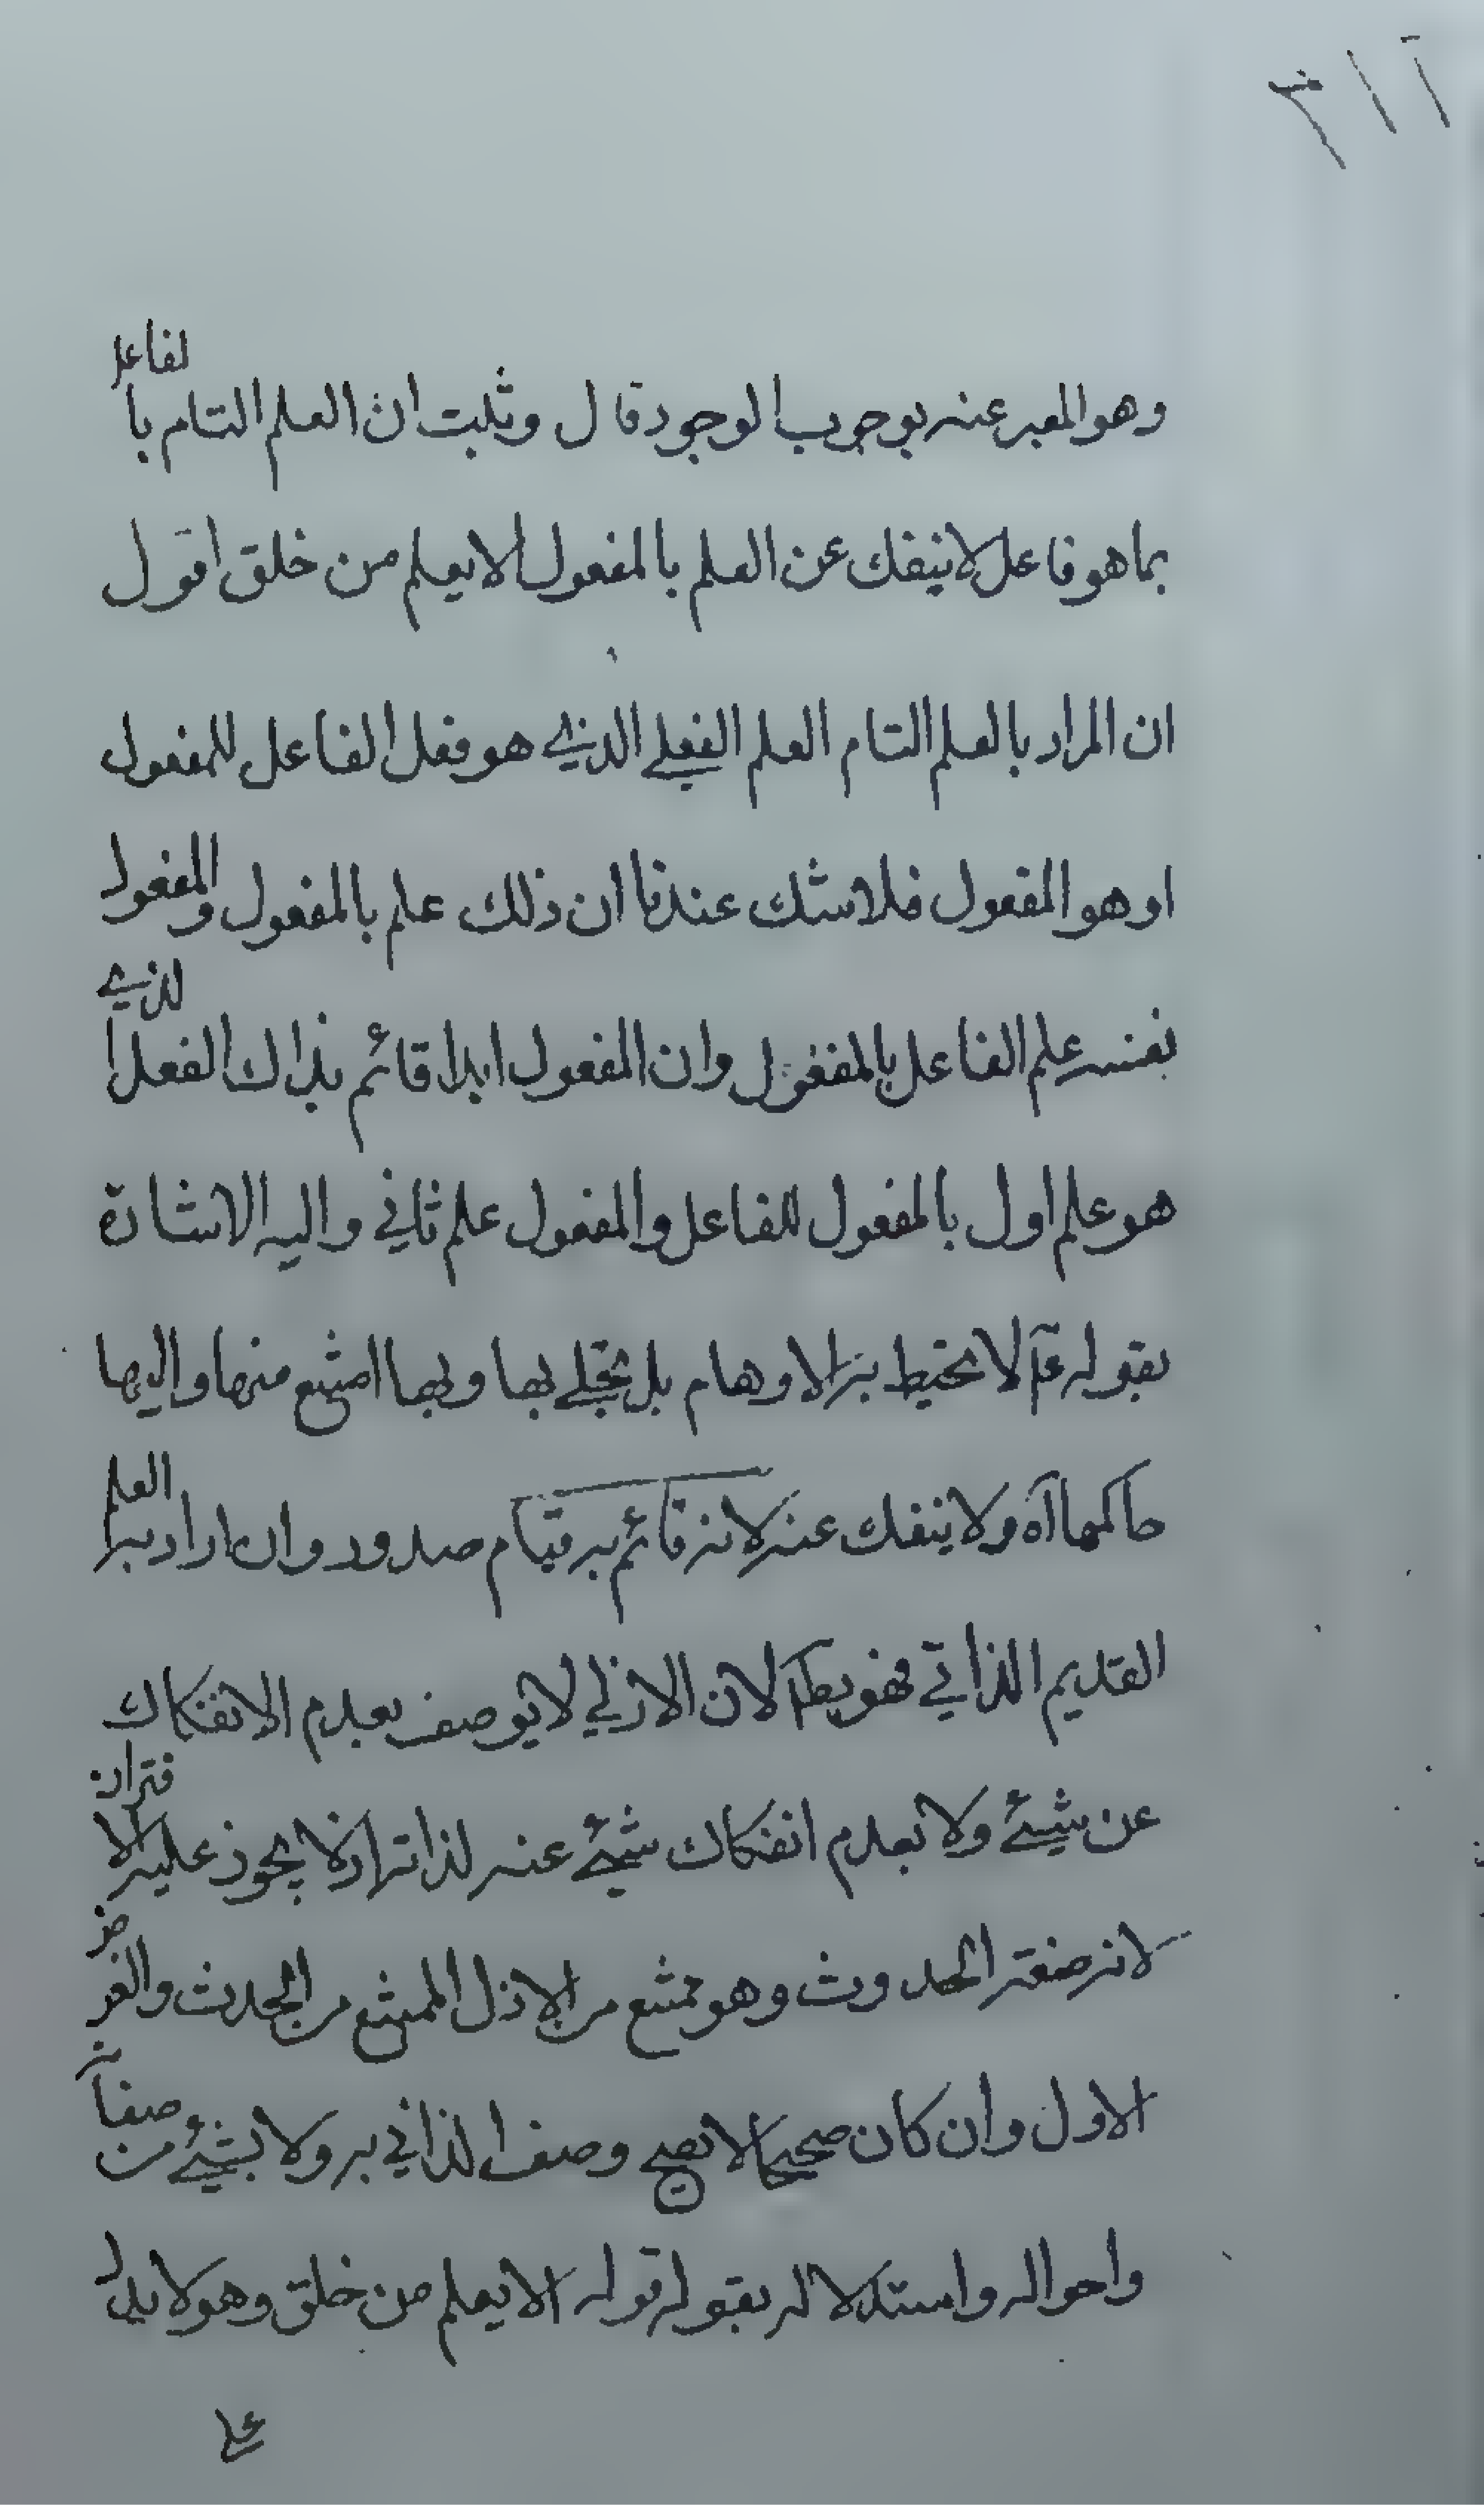 وهو المعبر عنه بوجوب الوجود قال وثبت ان العلم التام بالفاعل
بما هو فاعل لا ينفك عن العلم بالمفعول الا يعلم من خلق اقول
ان المراد بالعلم التام العلم الفعلي الذي هو فعل الفاعل للمفعول
او هو المفعول فلا شك عندنا ان ذلك علم بالمفعول والمفعول
بنفسه علم الفاعل بالمفعول وان المفعول ابدا قائم بذلك الفعل الذي
هو علم اول بالمفعول للفاعل والمفعول علم ثاني واليه الاشارة
بقوله ع لا تحيط به الاوهام بل تجلى بها وبها امتنع منها واليها
حاكمها آه ولا ينفك عنه لانه قائم به قيام صدور وان اراد به العلم
القديم الذاتي فهو بط لان الازلي لا يوصف بعدم الانفكاك
عن شيئ ولا بعدم انفكاك شيئ عنه لذاته اذ لا يجوز عليه الاقتران
لانه صفة الحدوث وهو ممتنع من الازل الممتنع من الحدث والفرض
الاول وان كان صحيحا لا يصح وصف الذاتي به ولا بشيئ من صفاته
واحواله واستدلاله بقوله قوله الا يعلم من خلق وهو لا يدل
على